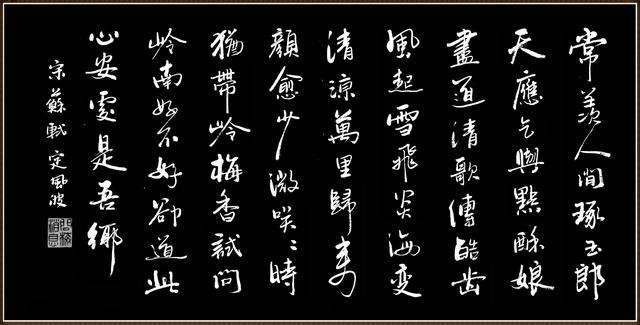 常羨人間琢玉郎
天應乞與點酥娘
盡道清歌傳皓齿
風起雪飛炎海变
清涼萬里歸来
顏愈少微咲〻時
猶帶岭梅香試問
岭南好不好卻道此
心安處是吾鄉
宋蘇軾定風波